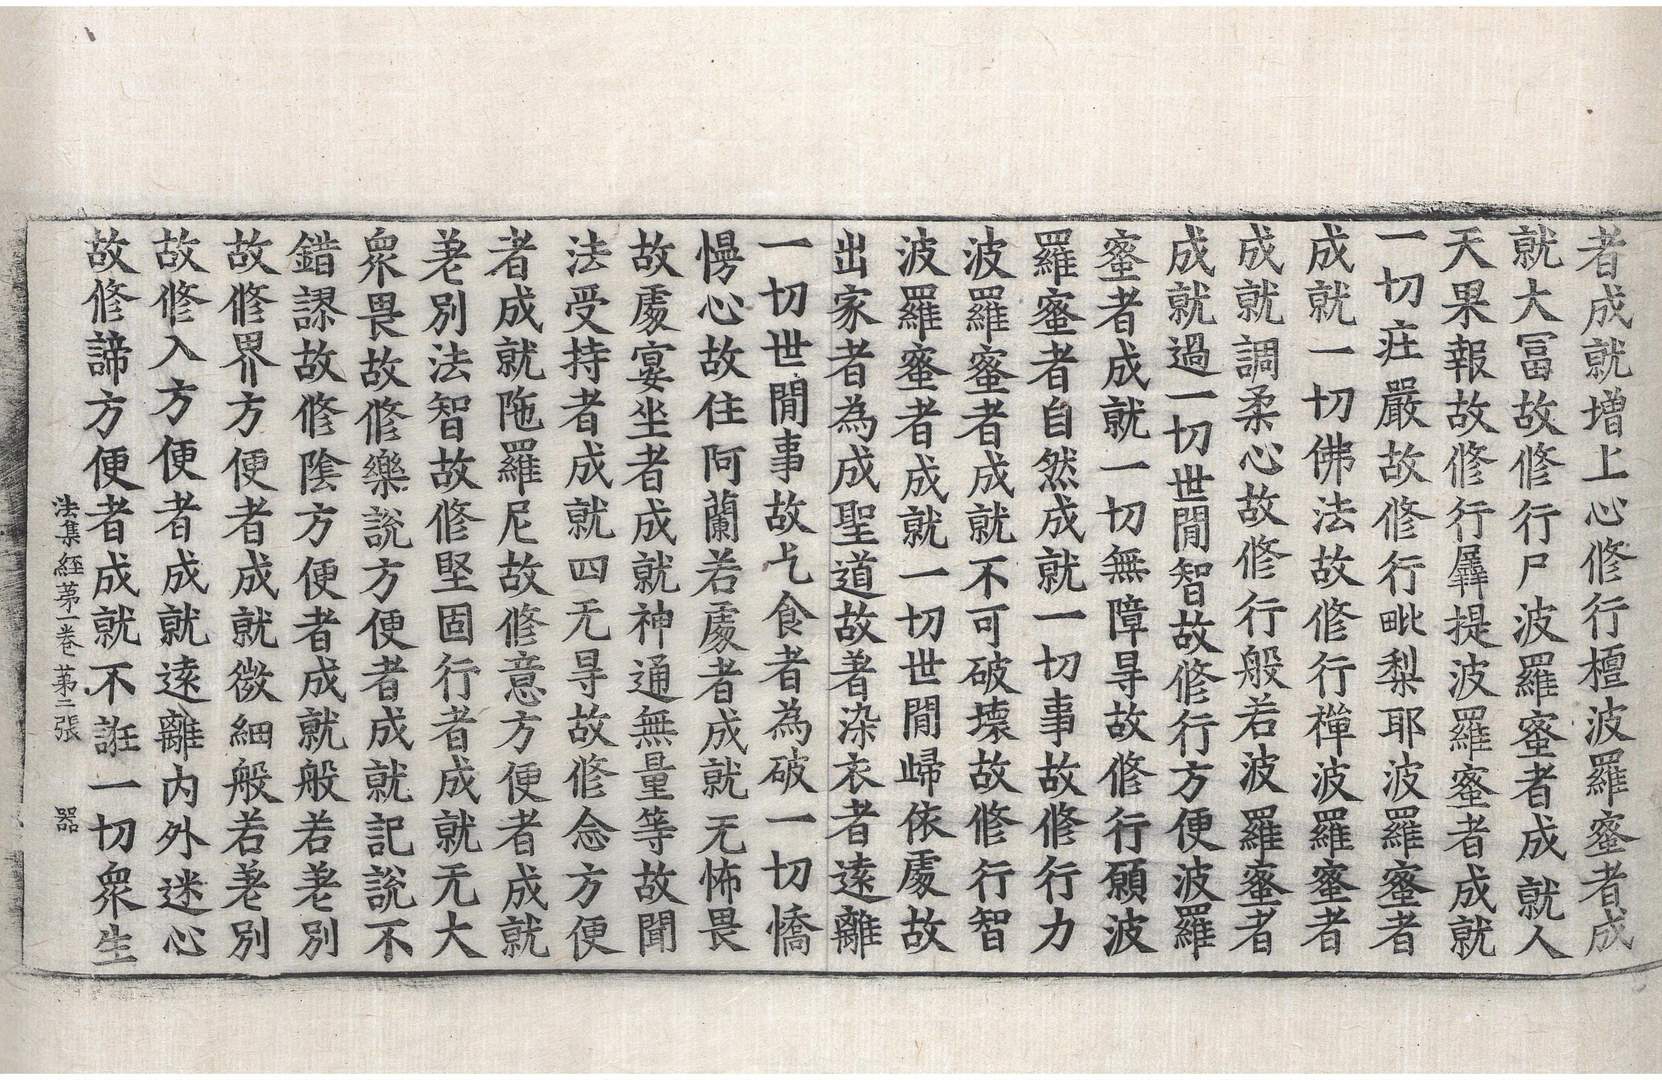 者成就增上心修行檀波羅蜜者成
就大冨故修行尸波羅蜜者成就人
天果報故修行羼提波羅蜜者成就
一切㽵嚴故修行毗梨耶波羅蜜者
成就一切佛法故修行禪波羅蜜者
成就調柔心故修行般若波羅蜜者
成就過一切世閒智故修行方便波羅
蜜者成就一切無障㝵故修行願波
羅蜜者自然成就一切事故修行力
波羅蜜者成就不可破壞故修行智
波羅蜜者成就一切世閒歸依處故
出家者為成聖道故著染衣者遠離
一切世閒事故乞食者為破一切憍
慢心故住阿蘭若處者成就无怖畏
故處宴坐者成就神通無量等故聞
法受持者成就四无㝵故修念方便
者成就陁羅尼故修意方便者成就
差別法智故修堅固行者成就无大
衆畏故修樂說方便者成就記說不
錯謬故修陰方便者成就般若差別
故修界方便者成就微細般若差別
故修入方便者成就遠離內外迷心
故修諦方便者成就不誑一切衆生
法集經第一卷 第二張 器